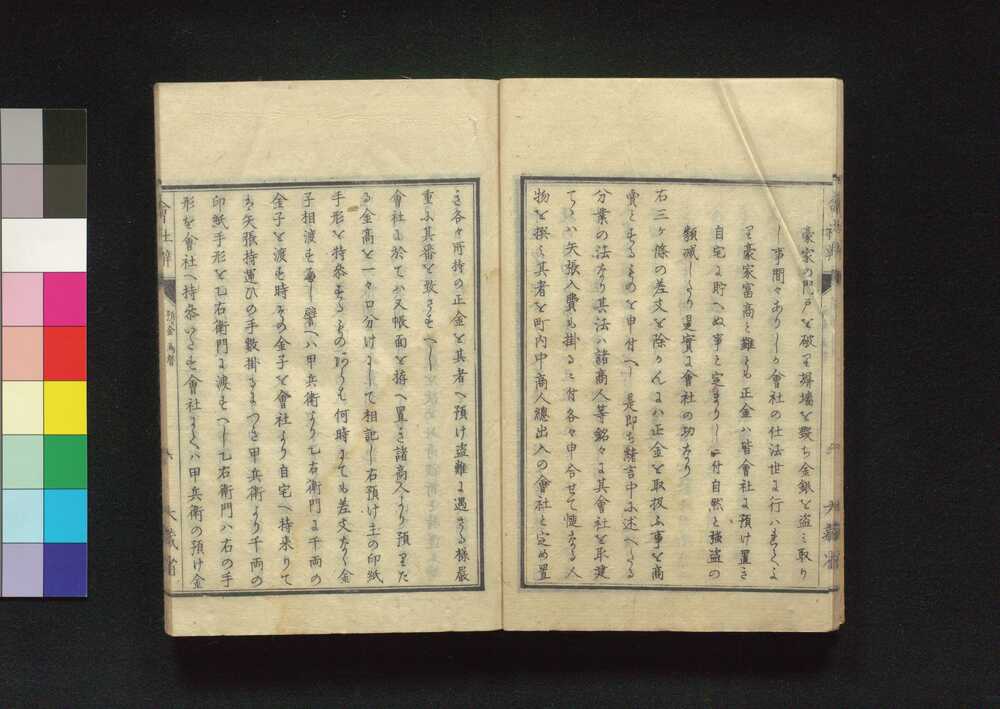 豪家の門戸を破り墻墻を毀ち金銀を盗み取り
し事間々ありしか會社の仕法世に行ハるゝよ
り豪家富商と雖も正金ハ皆會社に預け置き
自宅に貯へぬ事と定まりしニ付自然と強盗の
類減しゝり是實に會社の功なり
右三ヶ條の差支を除かんにハ正金を取扱ふ事を商
賣とするものを申付へし是即ち緒言中に述へたる
分業の法なり其法ハ諸商人等銘々に其會社を取建
てゝハ矢張入費も掛るニ付各々申合せて慥なる人
物を撰ミ其者を町内中商人總出入の會社と定め置
き各々所持の正金を其者へ預け盗難に遇さる様嚴
重ふ其番を致さすへし
會社に於てハ又帳面を拵へ置き諸商人より預りた
る金高を一々口分けにして相記し右預け主の印紙
手形を持参するものあらハ何時にても差支なく金
子相渡すへし譬へハ甲兵衛より乙右衛門に千両の
金子を渡す時その金子を會社より自宅へ持来りて
は矢張持運ひの手數掛るにつき甲兵衛より千両の
印紙手形を乙右衛門に渡すへし乙右衛門ハ右の手
形を會社へ持参いたせハ會社にてハ甲兵衛の預け金
會社辨
預金為替
六
大藏省